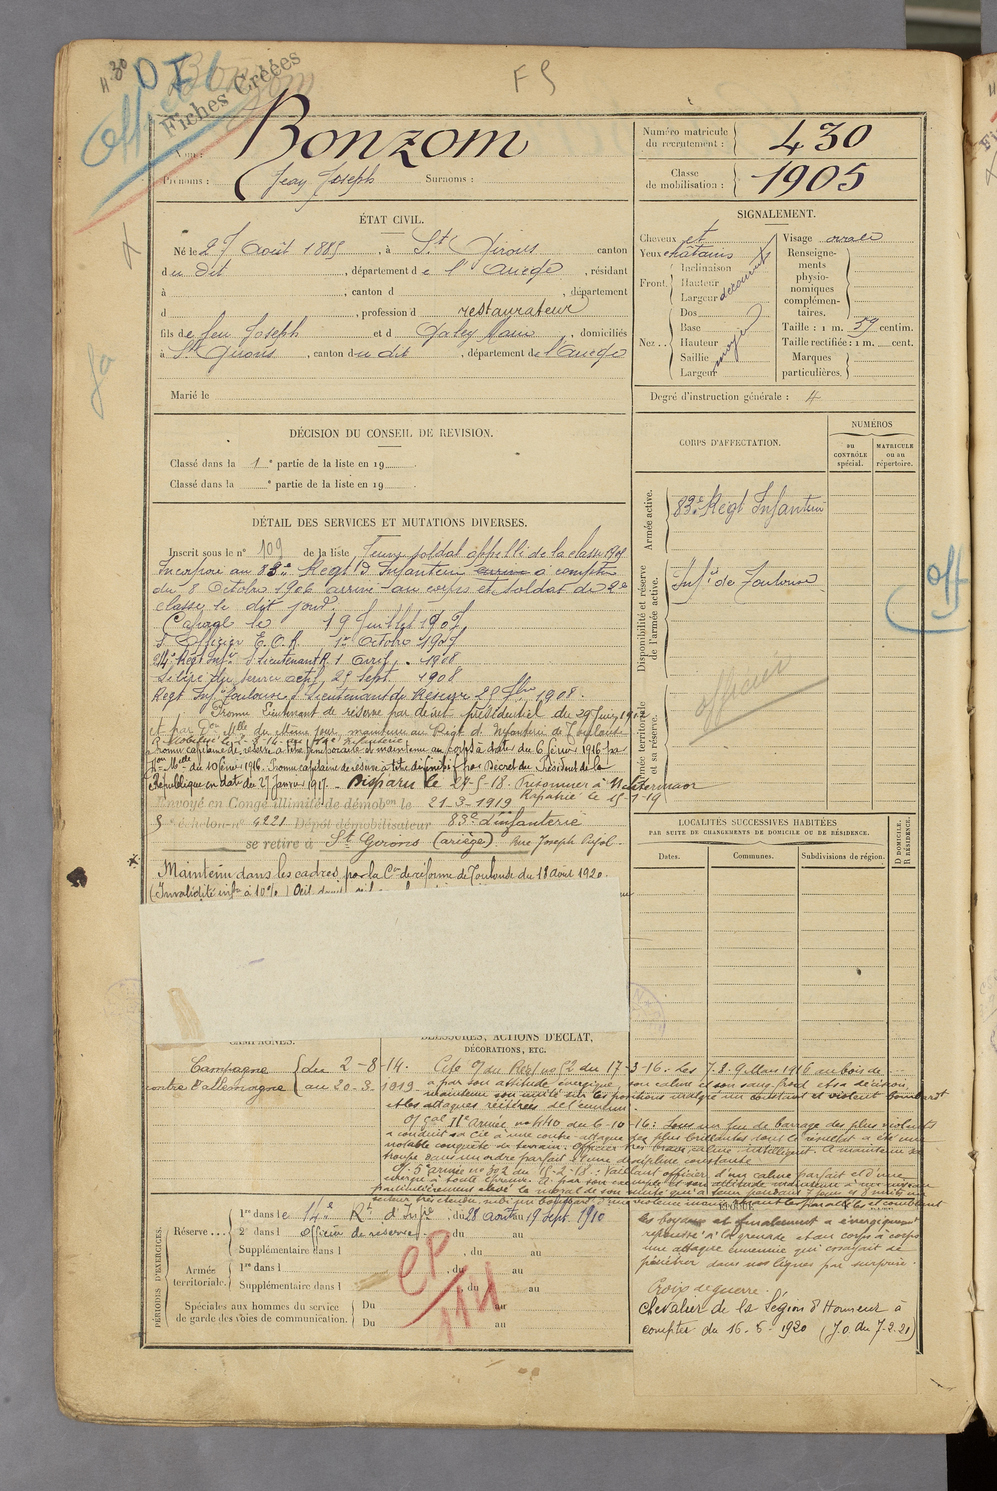 11.30
D I
F S
Off
Fiches Créées
Nom : Bonzom
Prénoms : Jean Joseph Surnoms :
Numéro matricule du recrutement : 430
Classe de mobilisation : 1905
ÉTAT CIVIL.
Né le 27 Août 1885, à St Girons canton
du dit, département de l'Ariège, résidant
à , canton d , département
d , profession d restaurateur
fils de feu Joseph et d Galey , domiciliés
à St Girons, canton du dit, département de l'Ariège
Marié le
SIGNALEMENT.
Cheveux et
Yeux châtains
Front. Inclinaison
Hauteur
Largeur découvert
Nez . . Dos
Base
Hauteur
Saillie
Largeur moyen
Visage ovale
Renseignements physionomiques complémentaires.
Taille : 1 m. 59 centim.
Taille rectifiée : 1 m. cent.
Marques particulières.
Degré d'instruction générale : 4
DÉCISION DU CONSEIL DE REVISION.
Classé dans la 1e partie de la liste en 19
Classé dans la e partie de la liste en 19
CORPS D'AFFECTATION.
NUMÉROS
au CONTRÔLE spécial.
MATRICULE ou au répertoire.
Armée active.
83e Régt Infanterie
Disponibilité et réserve de l'armée active.
Infie de Toulouse
officier
Off
Armée territoriale et sa réserve.
DÉTAIL DES SERVICES ET MUTATIONS DIVERSES.
Inscrit sous le n° 109 de la liste Jeune soldat appelé de la classe 1905
Incorporé au 83e Régt d'Infanterie à compter
du 8 Octobre 1906 arrivé au corps et soldat de 2e
classe le dit jour.
Caporal le 19 Juillet 1907
S Officier E.O.R. 1er Octobre 1907
14e Régt Infie S Lieutenant R. 1 avril 1908
Libéré du service actif 25 Sept. 1908
Régt Inf Toulouse S Lieutenant de Réserve 25 7bre 1908.
Promu Lieutenant de réserve par décret présidentiel du 29
et par Don Mlle du même jour, maintenu au Régt d'Infanterie de Toulouse
Promu capitaine de réserve à titre temporaire et maintenu au corps à dater du 6 février 1916 par
Don Mlle du 10 février 1916. Promu capitaine de réserve à titre définitif par Décret du Président de la
République en date du 27 Janvier 1917. - Disparu le 27-5-18. Prisonnier à
Rapatrié le 15-1-19
Envoyé en Congé illimité de démobon le 21-3-1919
5e échelon n° 4221 Dépôt démobilisateur 83e d'infanterie
se retire à St Gerons (ariège). Rue Joseph Pujol.
Maintenu dans les cadres par la Con de réforme de Toulouse du 18 Août 1920.
(Invalidité infre à 10%)
LOCALITÉS SUCCESSIVES HABITÉES
PAR SUITE DE CHANGEMENTS DE DOMICILE OU DE RÉSIDENCE.
Dates. Communes. Subdivisions de région.
D DOMICILE. R RÉSIDENCE.
CAMPAGNES.
Campagne contre l'allemagne
du 2-8-14.
au 20-3-1919
BLESSURES, ACTIONS D'ÉCLAT,
DÉCORATIONS, ETC.
Cité O/ du Régt no 52 du 17-3-16 : Les 7.8.9 Mars 1916 au bois de
a par son attitude énergique, son calme et son sang froid et sa décision,
maintenu son unité sur les positions malgré un constant et violent bombardt
et les attaques réitérées de l'ennemi.
O/ Gal IIe Armée no 440 du 6-10-16 : Sous un feu de barrage des plus violents
a conduit sa Cie à une contre-attaque des plus brillantes dont le résultat a été une
notable conquête de terrain. Officier très brave, calme, intelligent. A maintenu sa
troupe dans un ordre parfait et une discipline constante.
O/ 5e armée no 302 du 15-2-18 : Vaillant officier d'un calme parfait et d'une
énergie à toute épreuve. A par son exemple et son attitude maintenu à un niveau
particulièrement élevé le moral de son unité qui a tenu pendant 7 jours et 8 nuits un
secteur très étendu
les boyaux et finalement a énergiquement
repoussé à la grenade et au corps à corps
une attaque ennemie qui essayait de
pénétrer dans nos lignes par surprise.
Croix de guerre.
Chevalier de la Légion d'Honneur à
compter du 16-6-1920 (J.O. du 7-2-21)
PÉRIODES D'EXERCICES.
Réserve . . . 1re dans le 14e Rt d'Infie, du 28 août au 19 Sept. 1910
2e dans l officier de réserve, du au
Supplémentaire dans l , du au
Armée territoriale. 1re dans l , du au
Supplémentaire dans l , du au
Spéciales aux hommes du service de garde des voies de communication. Du au
Du au
CP
114